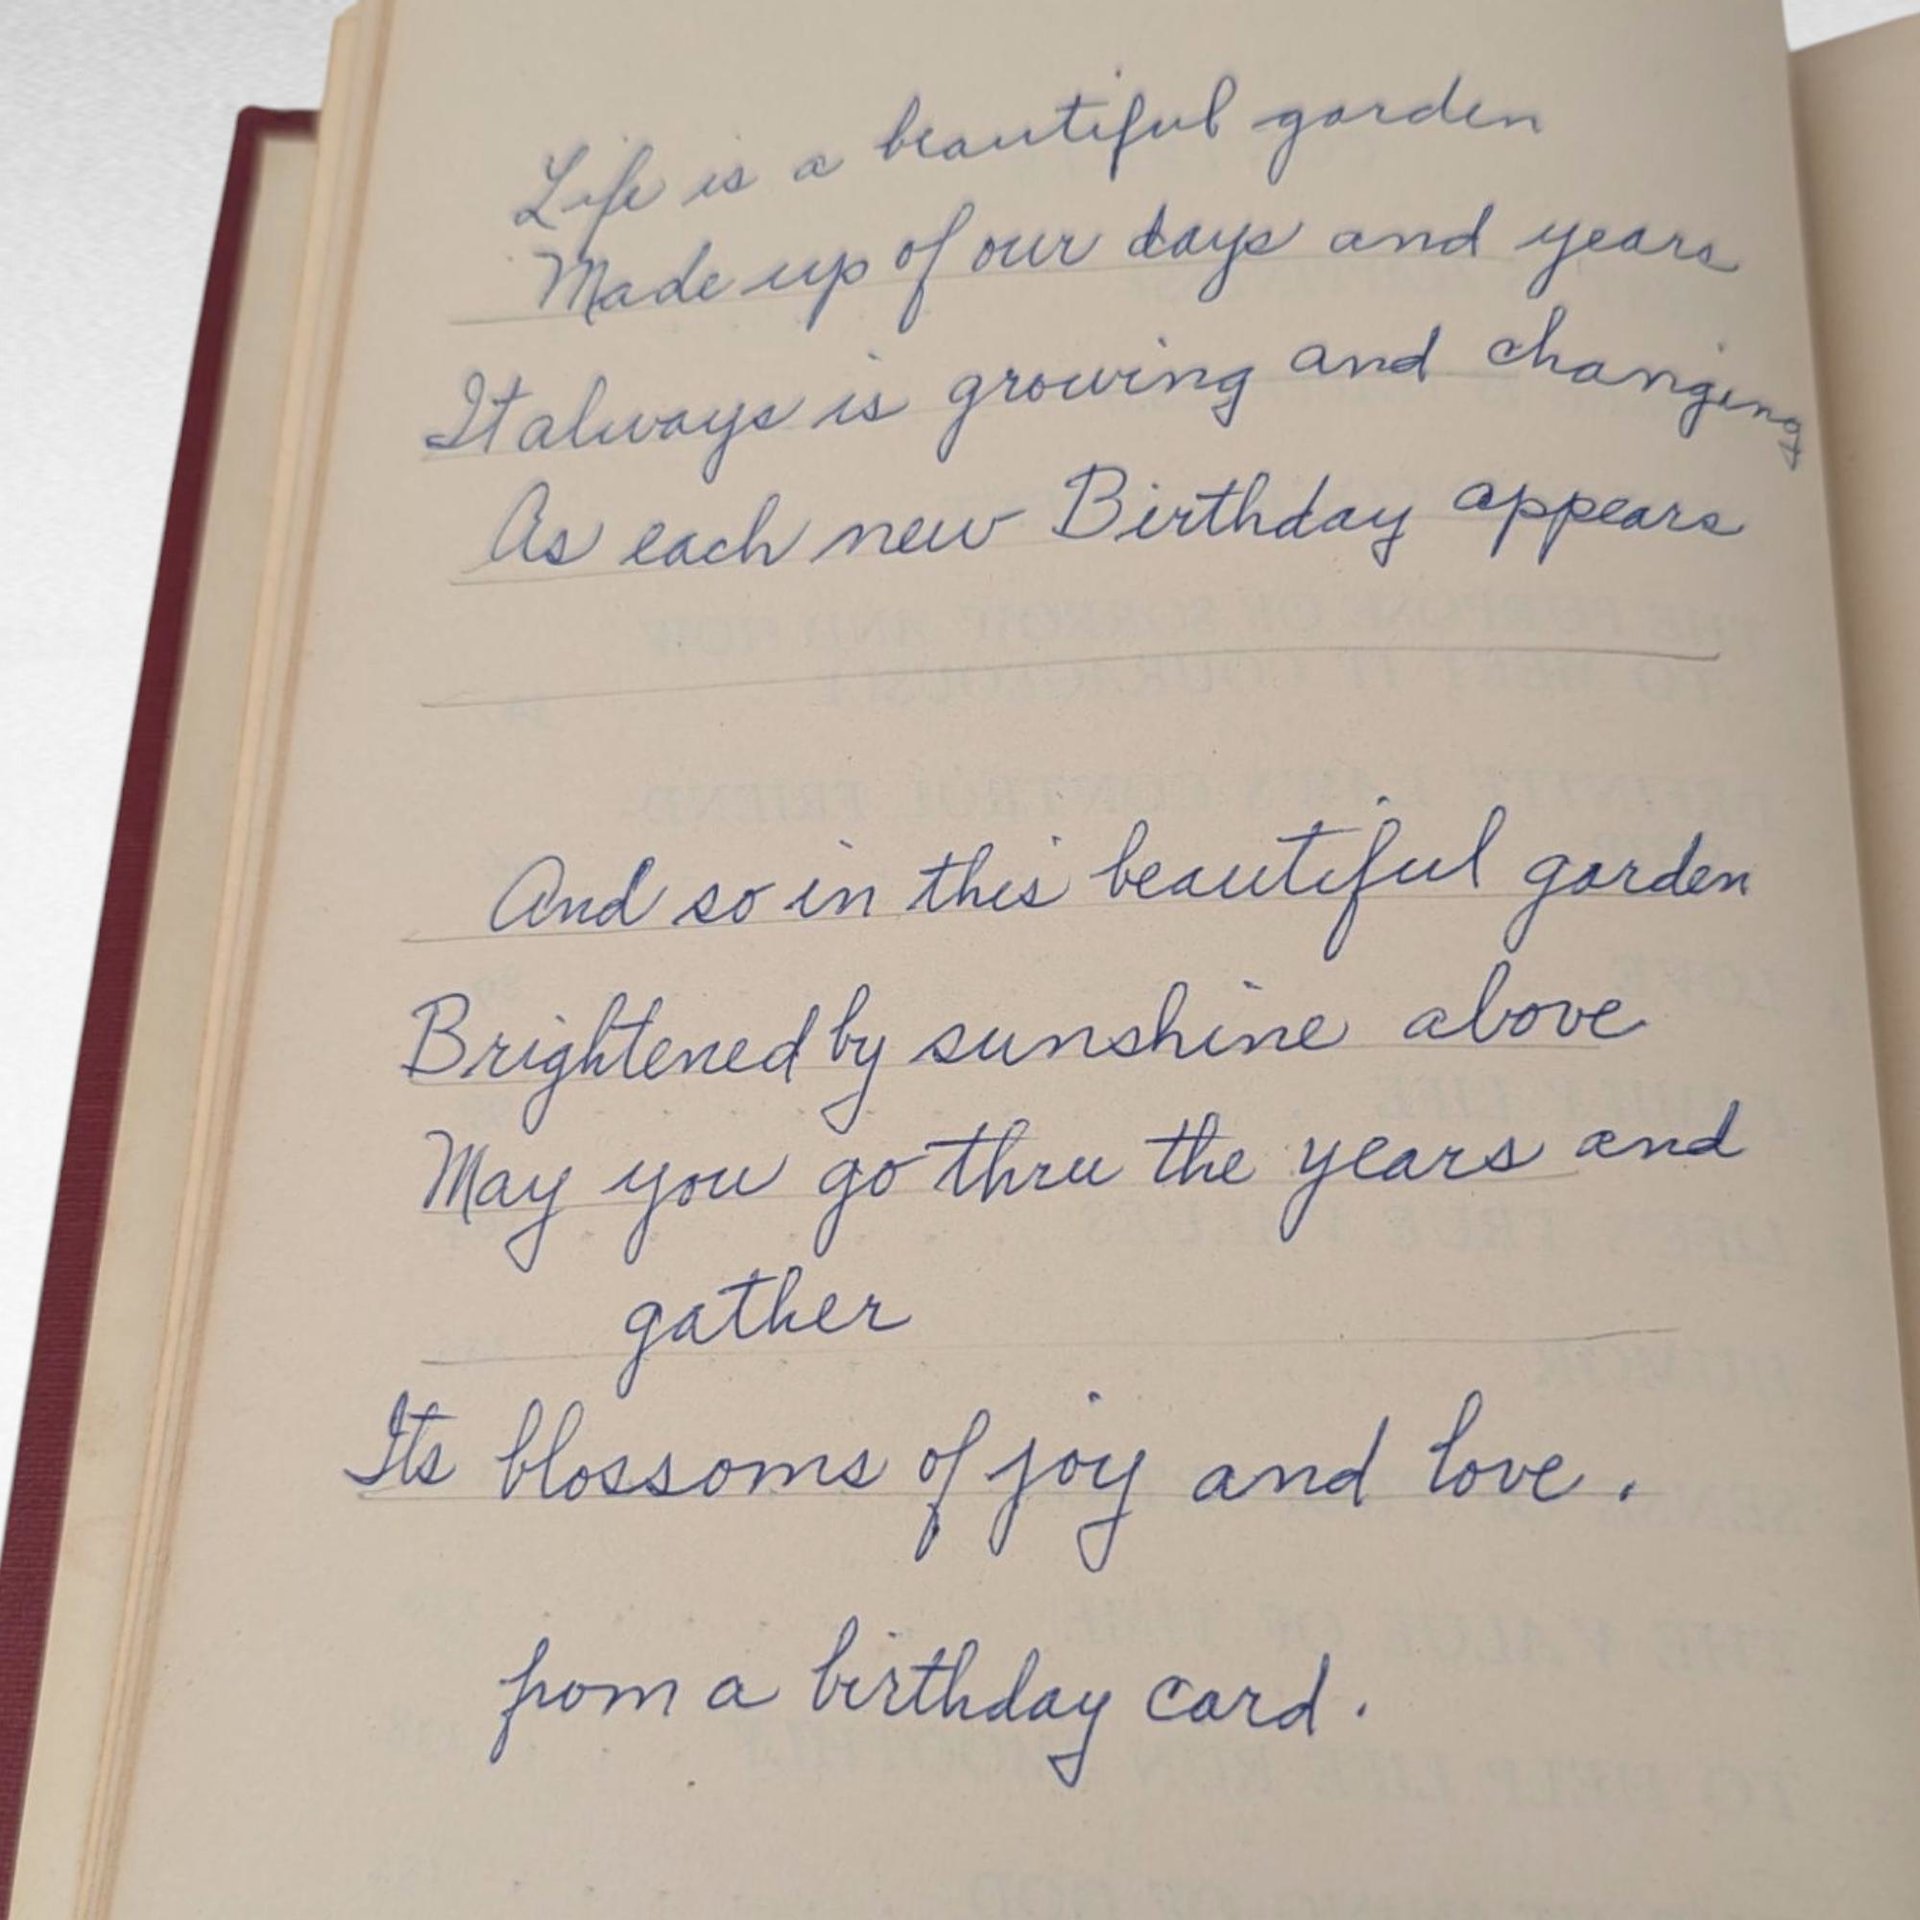 Life is a beautiful garden
Made up of our days and years
It always is growing and changing
As each new Birthday appears
And so in this beautiful garden
Brightened by sunshine above
May you go thru the years and
gather
Its blossoms of joy and love.
from a birthday card.